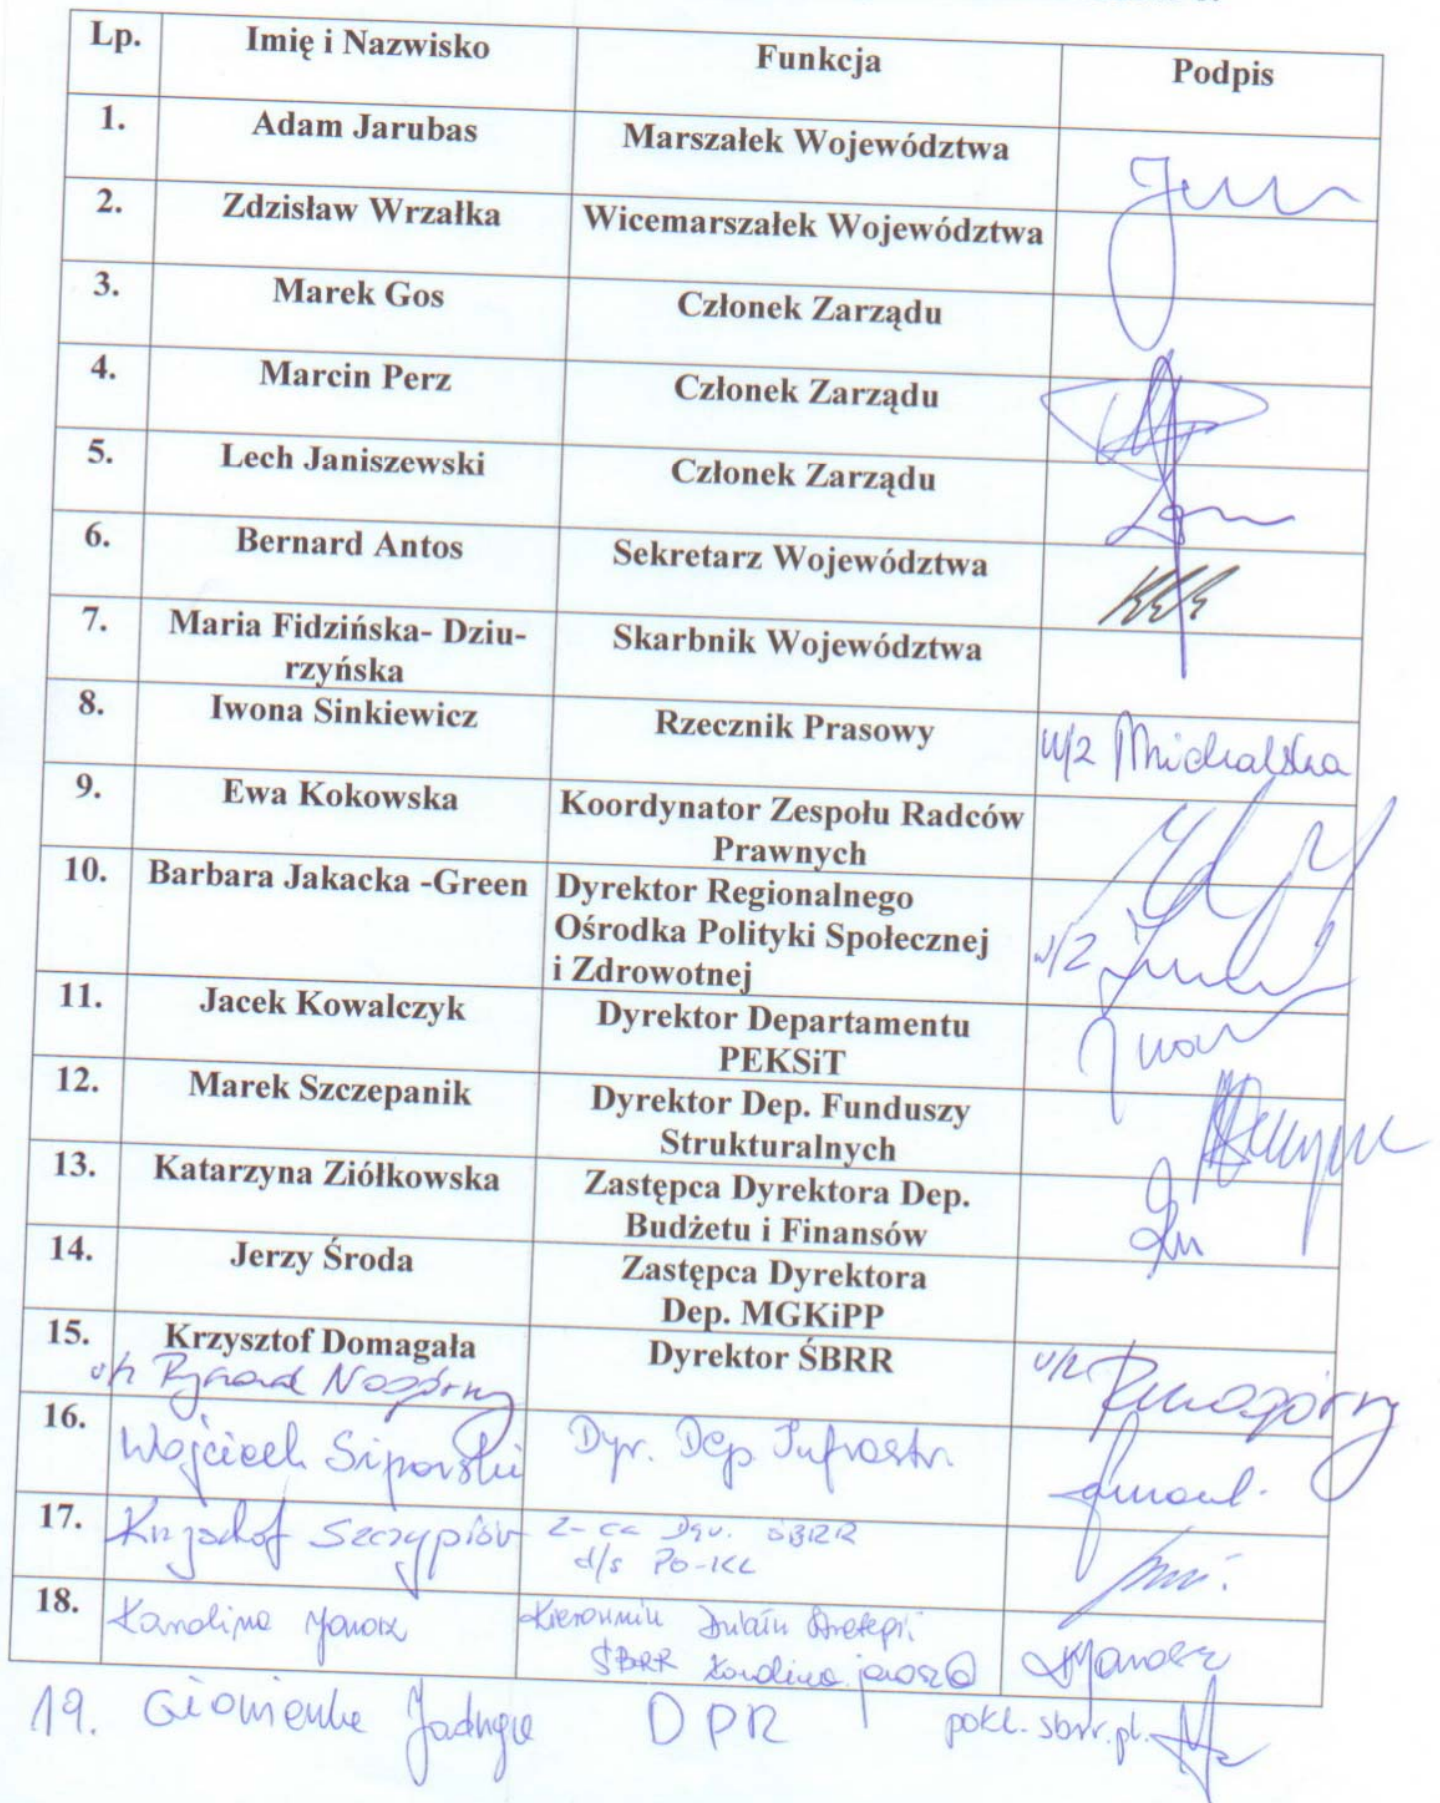 Lp. Imię i Nazwisko Funkcja Podpis
1. Adam Jarubas Marszałek Województwa
2. Zdzisław Wrzałka Wicemarszałek Województwa
3. Marek Gos Członek Zarządu
4. Marcin Perz Członek Zarządu
5. Lech Janiszewski Członek Zarządu
6. Bernard Antos Sekretarz Województwa
7. Maria Fidzińska- Dziu-
rzyńska
Skarbnik Województwa
8. Iwona Sinkiewicz Rzecznik Prasowy w/z Michalska
9. Ewa Kokowska Koordynator Zespołu Radców
Prawnych
10. Barbara Jakacka -Green Dyrektor Regionalnego
Ośrodka Polityki Społecznej
i Zdrowotnej
w/z
11. Jacek Kowalczyk Dyrektor Departamentu
PEKSiT
12. Marek Szczepanik Dyrektor Dep. Funduszy
Strukturalnych
13. Katarzyna Ziółkowska Zastępca Dyrektora Dep.
Budżetu i Finansów
14. Jerzy Środa Zastępca Dyrektora
Dep. MGKiPP
15. Krzysztof Domagała Dyrektor ŚBRR
Nogórny
16. Wojciech Siporski Dyr. Dep. Infrastr.
17. Krzysztof Szczypiór Z-ca Dyr. ŚBRR
d/s PO-KL
18. Karolina Jarosz Kierownik Działu Strategii
ŚBRR karolina.jarosz@
19. Jadwiga DPR pokl.sbrr.pl